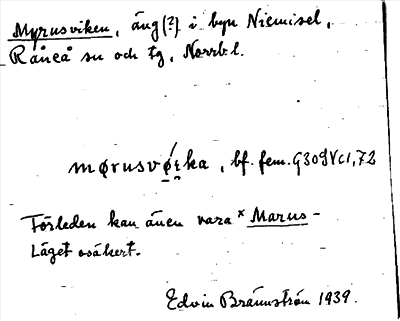 Myrusviken, äng (?) i byn Niemisel,
Råneå sn och tg, Norrb l.
mørusvǿɪ̯ka, bf. fem.
Förleden kan även vara ˣMarus-
Läget osäkert.
Edvin Brännström 1939.